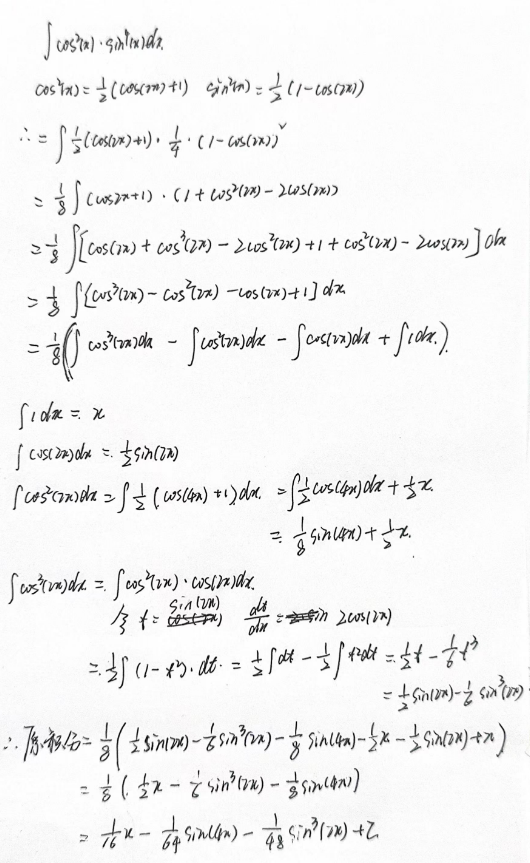 ∫cos²(x)·sin⁴(x)dx.
cos²(x) = 1/2(cos(2x)+1)  sin²(x) = 1/2(1-cos(2x))
∴ = ∫1/2(cos(2x)+1)·1/4·(1-cos(2x))²
= 1/8∫(cos2x+1)·(1+cos²(2x)-2cos(2x))
= 1/8∫[cos(2x)+cos³(2x)-2cos²(2x)+1+cos²(2x)-2cos(2x)]dx
= 1/8∫[cos³(2x)-cos²(2x)-cos(2x)+1]dx
= 1/8(∫cos³(2x)dx - ∫cos²(2x)dx - ∫cos(2x)dx + ∫1dx.)
∫1dx = x
∫cos(2x)dx = 1/2sin(2x)
∫cos²(2x)dx = ∫1/2(cos(4x)+1)dx. = ∫1/2cos(4x)dx + 1/2x.
= 1/8sin(4x)+1/2x.
∫cos³(2x)dx = ∫cos²(2x)·cos(2x)dx.
令 t = sin(2x)  dt/dx = 2cos(2x)
= 1/2∫(1-t²)·dt. = 1/2∫dt - 1/2∫t²dt = 1/2t - 1/6t³
= 1/2sin(2x)-1/6sin³(2x)
∴ 原积分 = 1/8(1/2sin(2x)-1/6sin³(2x)-1/8sin(4x)-1/2x-1/2sin(2x)+x)
= 1/8(1/2x-1/6sin³(2x)-1/8sin(4x))
= 1/16x-1/64sin(4x)-1/48sin³(2x)+C